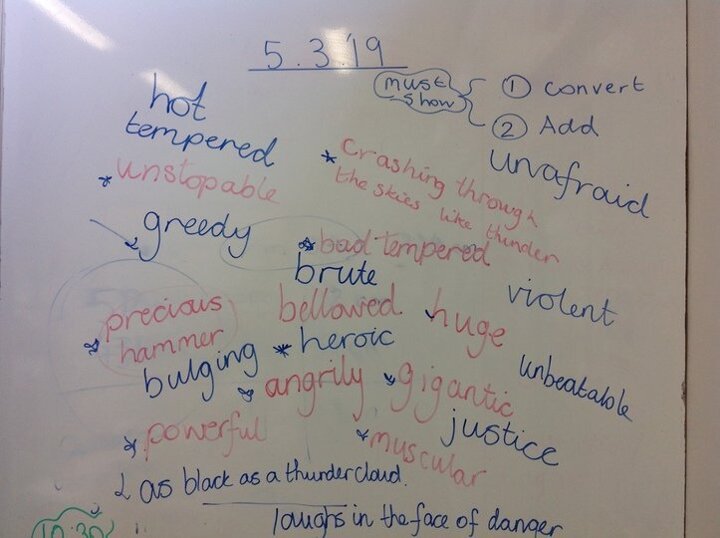 5.3.'19
must show
① convert
② Add
hot tempered
unafraid
* unstopable
* crashing through
the skies like thunder
greedy
* bad tempered
brute
violent
* precious
hammer
bellowed
huge
bulging
* heroic
unbeatable
angrily
gigantic
* powerful
justice
* muscular
as black as a thundercloud.
laughs in the face of danger
10:30